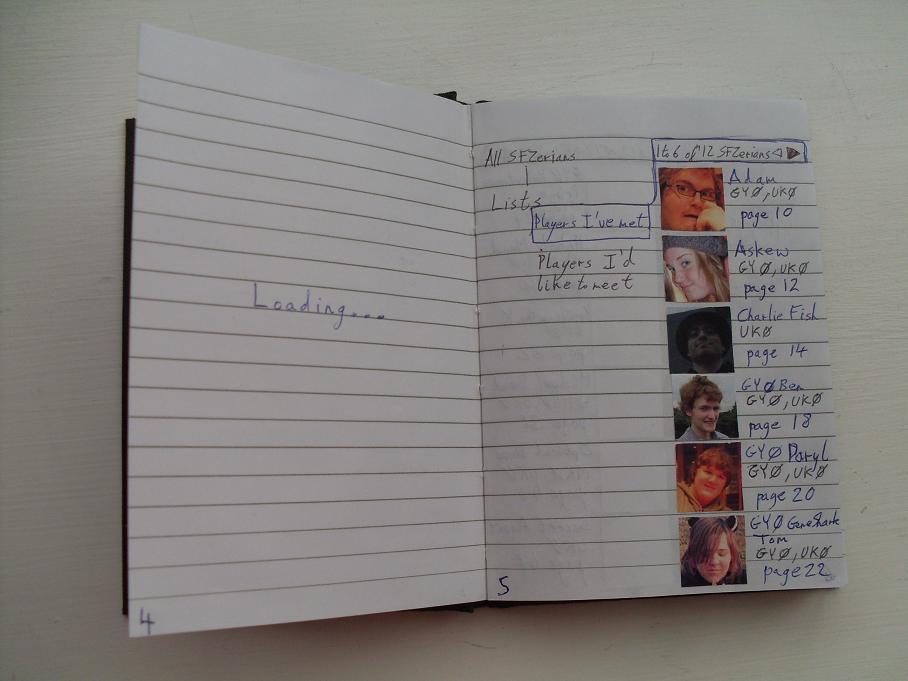 Loading...
4
All SFZerians
Lists
Players I've met
Players I'd
like to meet
5
1 to 6 of 12 SFZerians
Adam
GYØ, UKØ
page 10
Askew
GYØ, UKØ
page 12
Charlie Fish
UKØ
page 14
GYØ Ben
GYØ, UKØ
page 18
GYØ Daryl
GYØ, UKØ
page 20
GYØ GeneShark
Tom
GYØ, UKØ
page 22